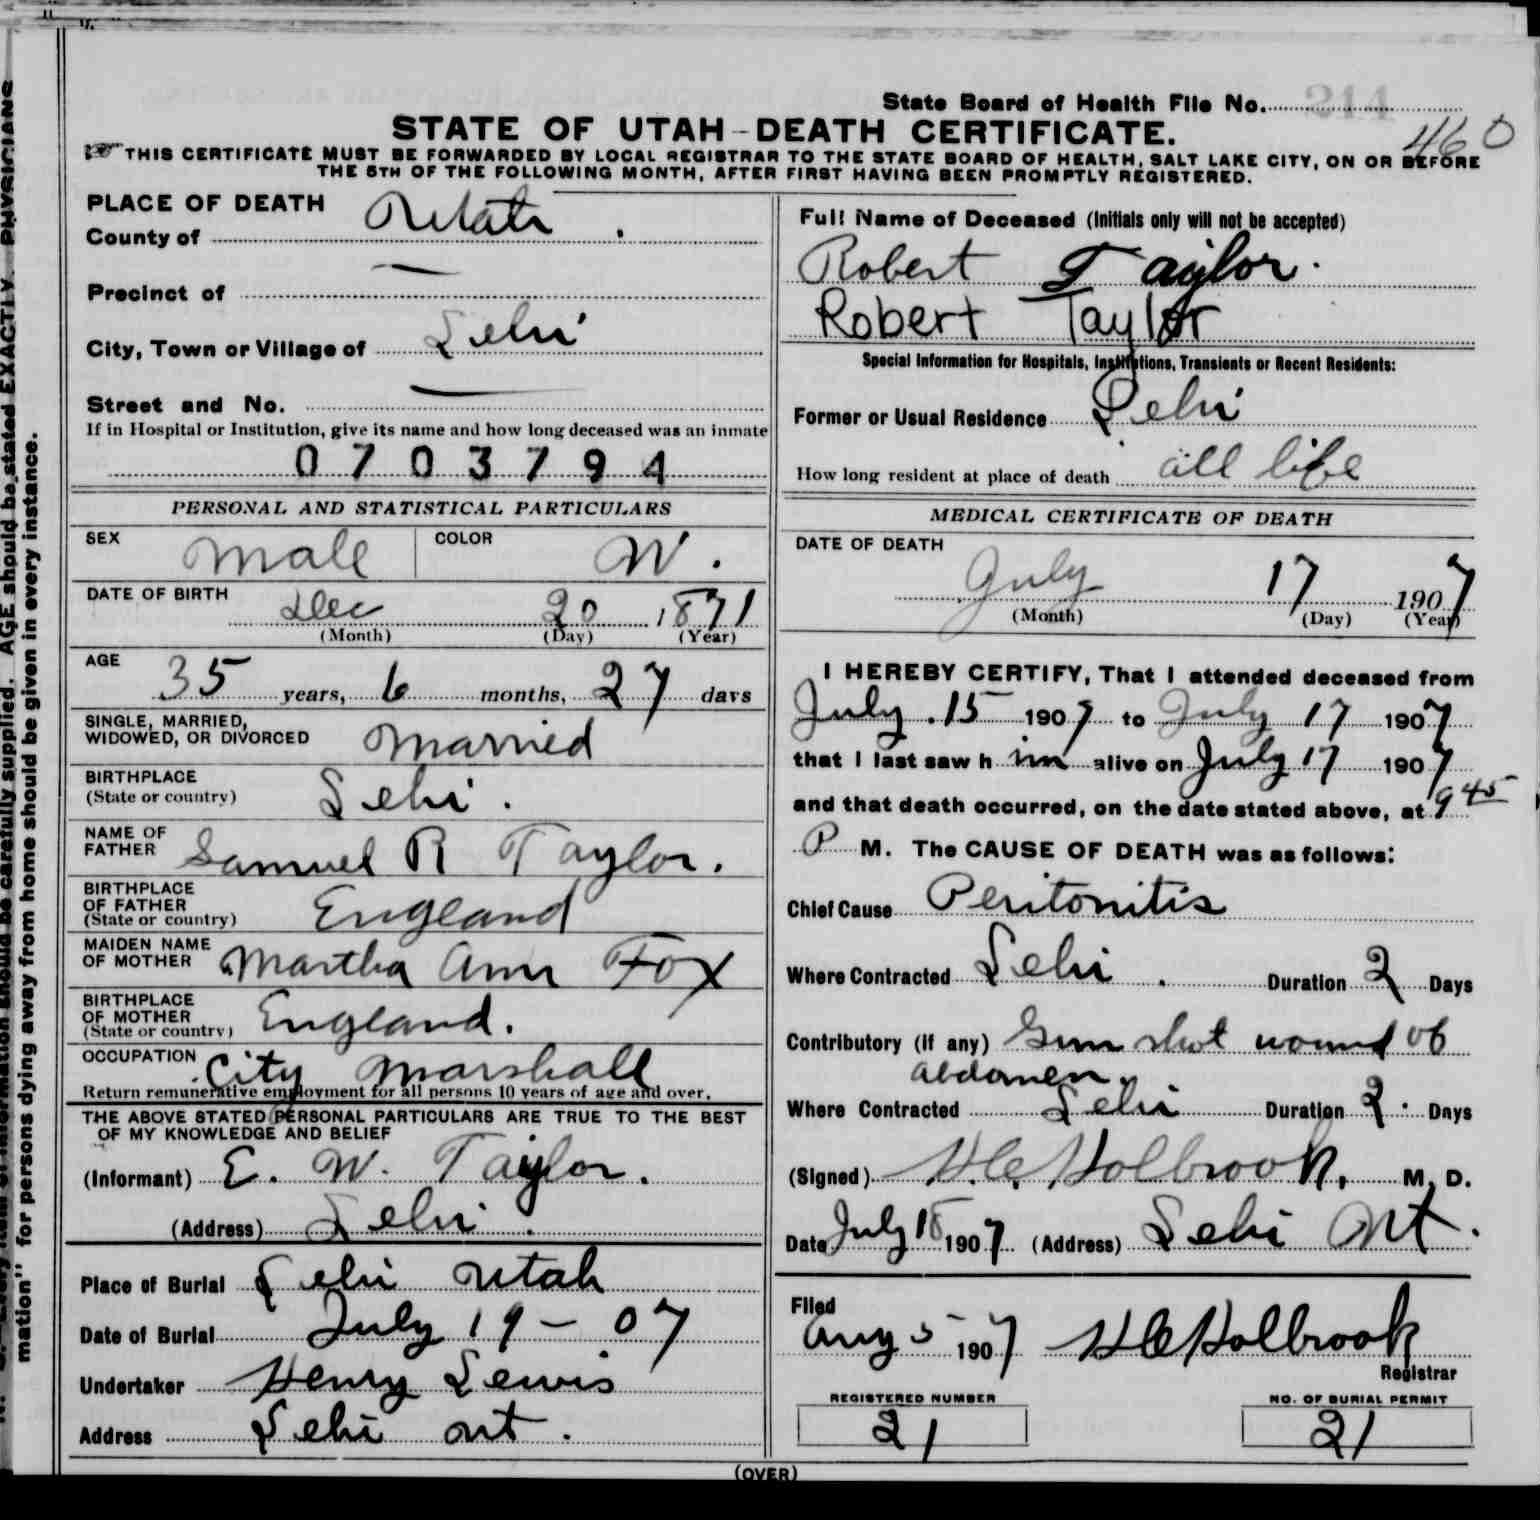 State Board of Health File No. 214
STATE OF UTAH-DEATH CERTIFICATE.
460
THIS CERTIFICATE MUST BE FORWARDED BY LOCAL REGISTRAR TO THE STATE BOARD OF HEALTH, SALT LAKE CITY, ON OR BEFORE
THE 5TH OF THE FOLLOWING MONTH, AFTER FIRST HAVING BEEN PROMPTLY REGISTERED.
PLACE OF DEATH
County of Utah.
Precinct of —
City, Town or Village of Lehi
Street and No. —
If in Hospital or Institution, give its name and how long deceased was an inmate
0703794
PERSONAL AND STATISTICAL PARTICULARS
SEX Male COLOR W.
DATE OF BIRTH Dec 20 1871
(Month) (Day) (Year)
AGE 35 years, 6 months, 27 days
SINGLE, MARRIED,
WIDOWED, OR DIVORCED Married
BIRTHPLACE
(State or country) Lehi.
NAME OF
FATHER Samuel R Taylor.
BIRTHPLACE
OF FATHER
(State or country) England
MAIDEN NAME
OF MOTHER Martha Ann Fox
BIRTHPLACE
OF MOTHER
(State or country) England.
OCCUPATION City Marshall
Return remunerative employment for all persons 10 years of age and over.
THE ABOVE STATED PERSONAL PARTICULARS ARE TRUE TO THE BEST
OF MY KNOWLEDGE AND BELIEF
(Informant) E. W. Taylor.
(Address) Lehi.
Place of Burial Lehi Utah
Date of Burial July 19 - 07
Undertaker Henry Lewis
Address Lehi Ut.
Full Name of Deceased (Initials only will not be accepted)
Robert Taylor.
Robert Taylor
Special Information for Hospitals, Institutions, Transients or Recent Residents:
Former or Usual Residence Lehi
How long resident at place of death all life
MEDICAL CERTIFICATE OF DEATH
DATE OF DEATH
July 17 1907
(Month) (Day) (Year)
I HEREBY CERTIFY, That I attended deceased from
July 15 1907 to July 17 1907
that I last saw him alive on July 17 1907
and that death occurred, on the date stated above, at 9 45
P M. The CAUSE OF DEATH was as follows:
Chief Cause Peritonitis
Where Contracted Lehi. Duration 2 Days
Contributory (if any) Gun shot wound of
abdomen.
Where Contracted Lehi Duration 2. Days
(Signed) H.C. Holbrook, M. D.
Date July 18 1907 (Address) Lehi Ut.
Filed
Aug 5 1907 H C Holbrook
Registrar
REGISTERED NUMBER
21
NO. OF BURIAL PERMIT
21
(OVER)
mation" for persons dying away from home should be given in every instance.
should be carefully supplied. AGE should be stated EXACTLY. PHYSICIANS